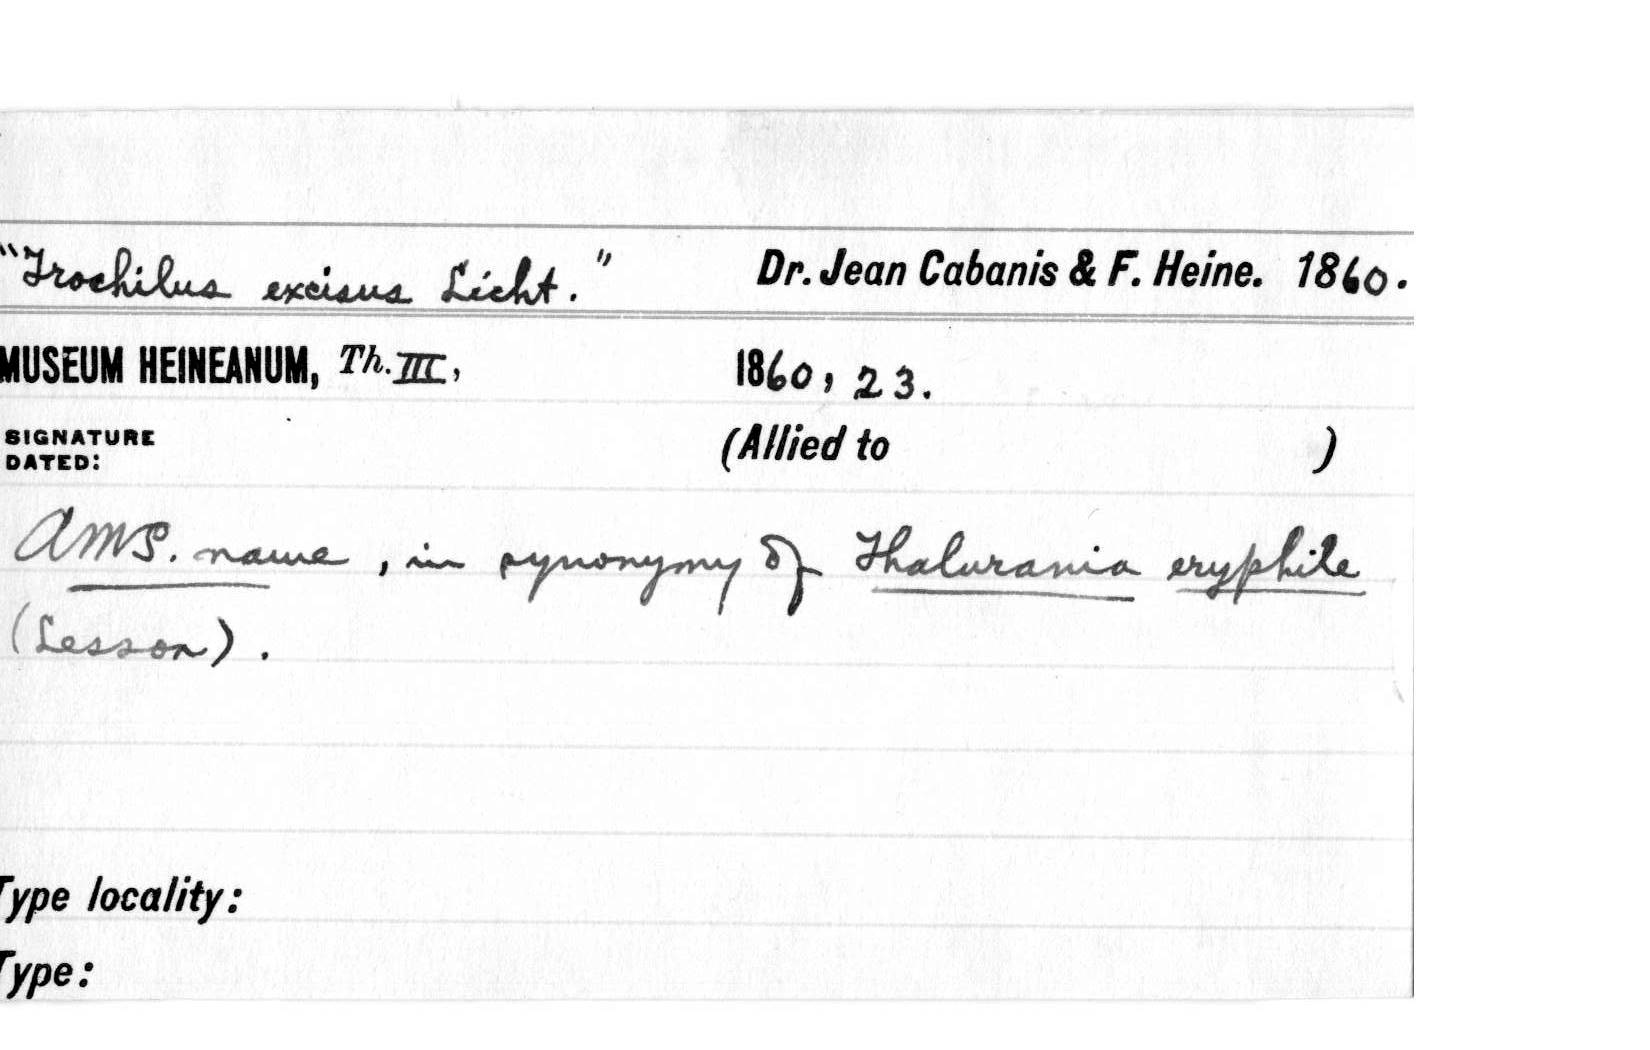 "Trochilus excisus Licht." Dr. Jean Cabanis & F. Heine. 1860.
MUSEUM HEINEANUM, Th. III, 1860, 23.
SIGNATURE
DATED: (Allied to )
A MS. name, in synonymy of Thalurania eryphile
(Lesson).
Type locality:
Type: